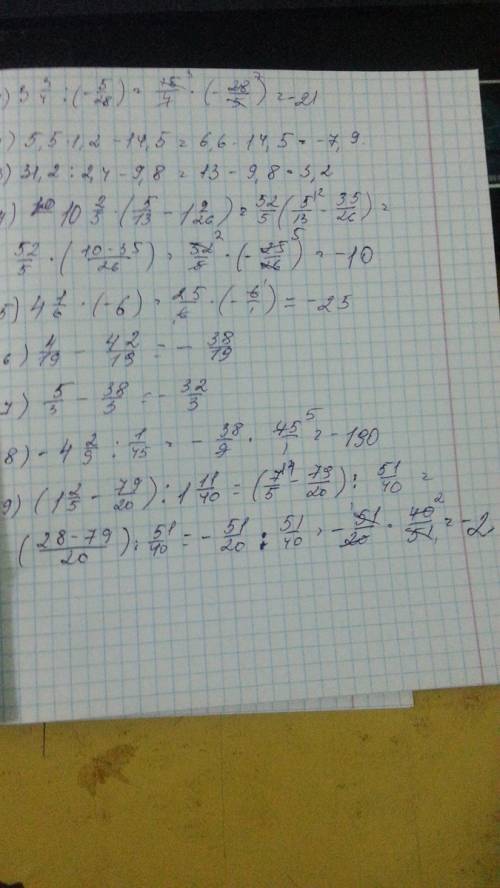 ) 3 3/4 : (- 5/28) = 15/4 ^3 · (- 28/5 ^7) = -21
) 5,5 · 1,2 - 14,5 = 6,6 - 14,5 = -7,9.
3) 31,2 : 2,4 - 9,8 = 13 - 9,8 = 3,2
4) 10 2/5 · (5/13 - 1 9/26) = 52/5 (5/13 ^2 - 35/26) =
52/5 · (10-35/26) = 52/5 ^2 · (- 25/26 ^5) = -10
5) 4 1/6 · (-6) = 25/6 · (- 6/1 ^1) = -25
6) 4/19 - 42/19 = - 38/19
7) 5/3 - 38/3 = - 32/3
8) -4 2/9 : 1/45 = - 38/9 · 45/1 ^5 = -190
9) (1 2/5 - 79/20) : 1 11/40 = (7/5 ^4 - 79/20) : 51/40 =
(28-79/20) : 51/40 = - 51/20 : 51/40 = - 51/20 · 40/51 ^2 = -2